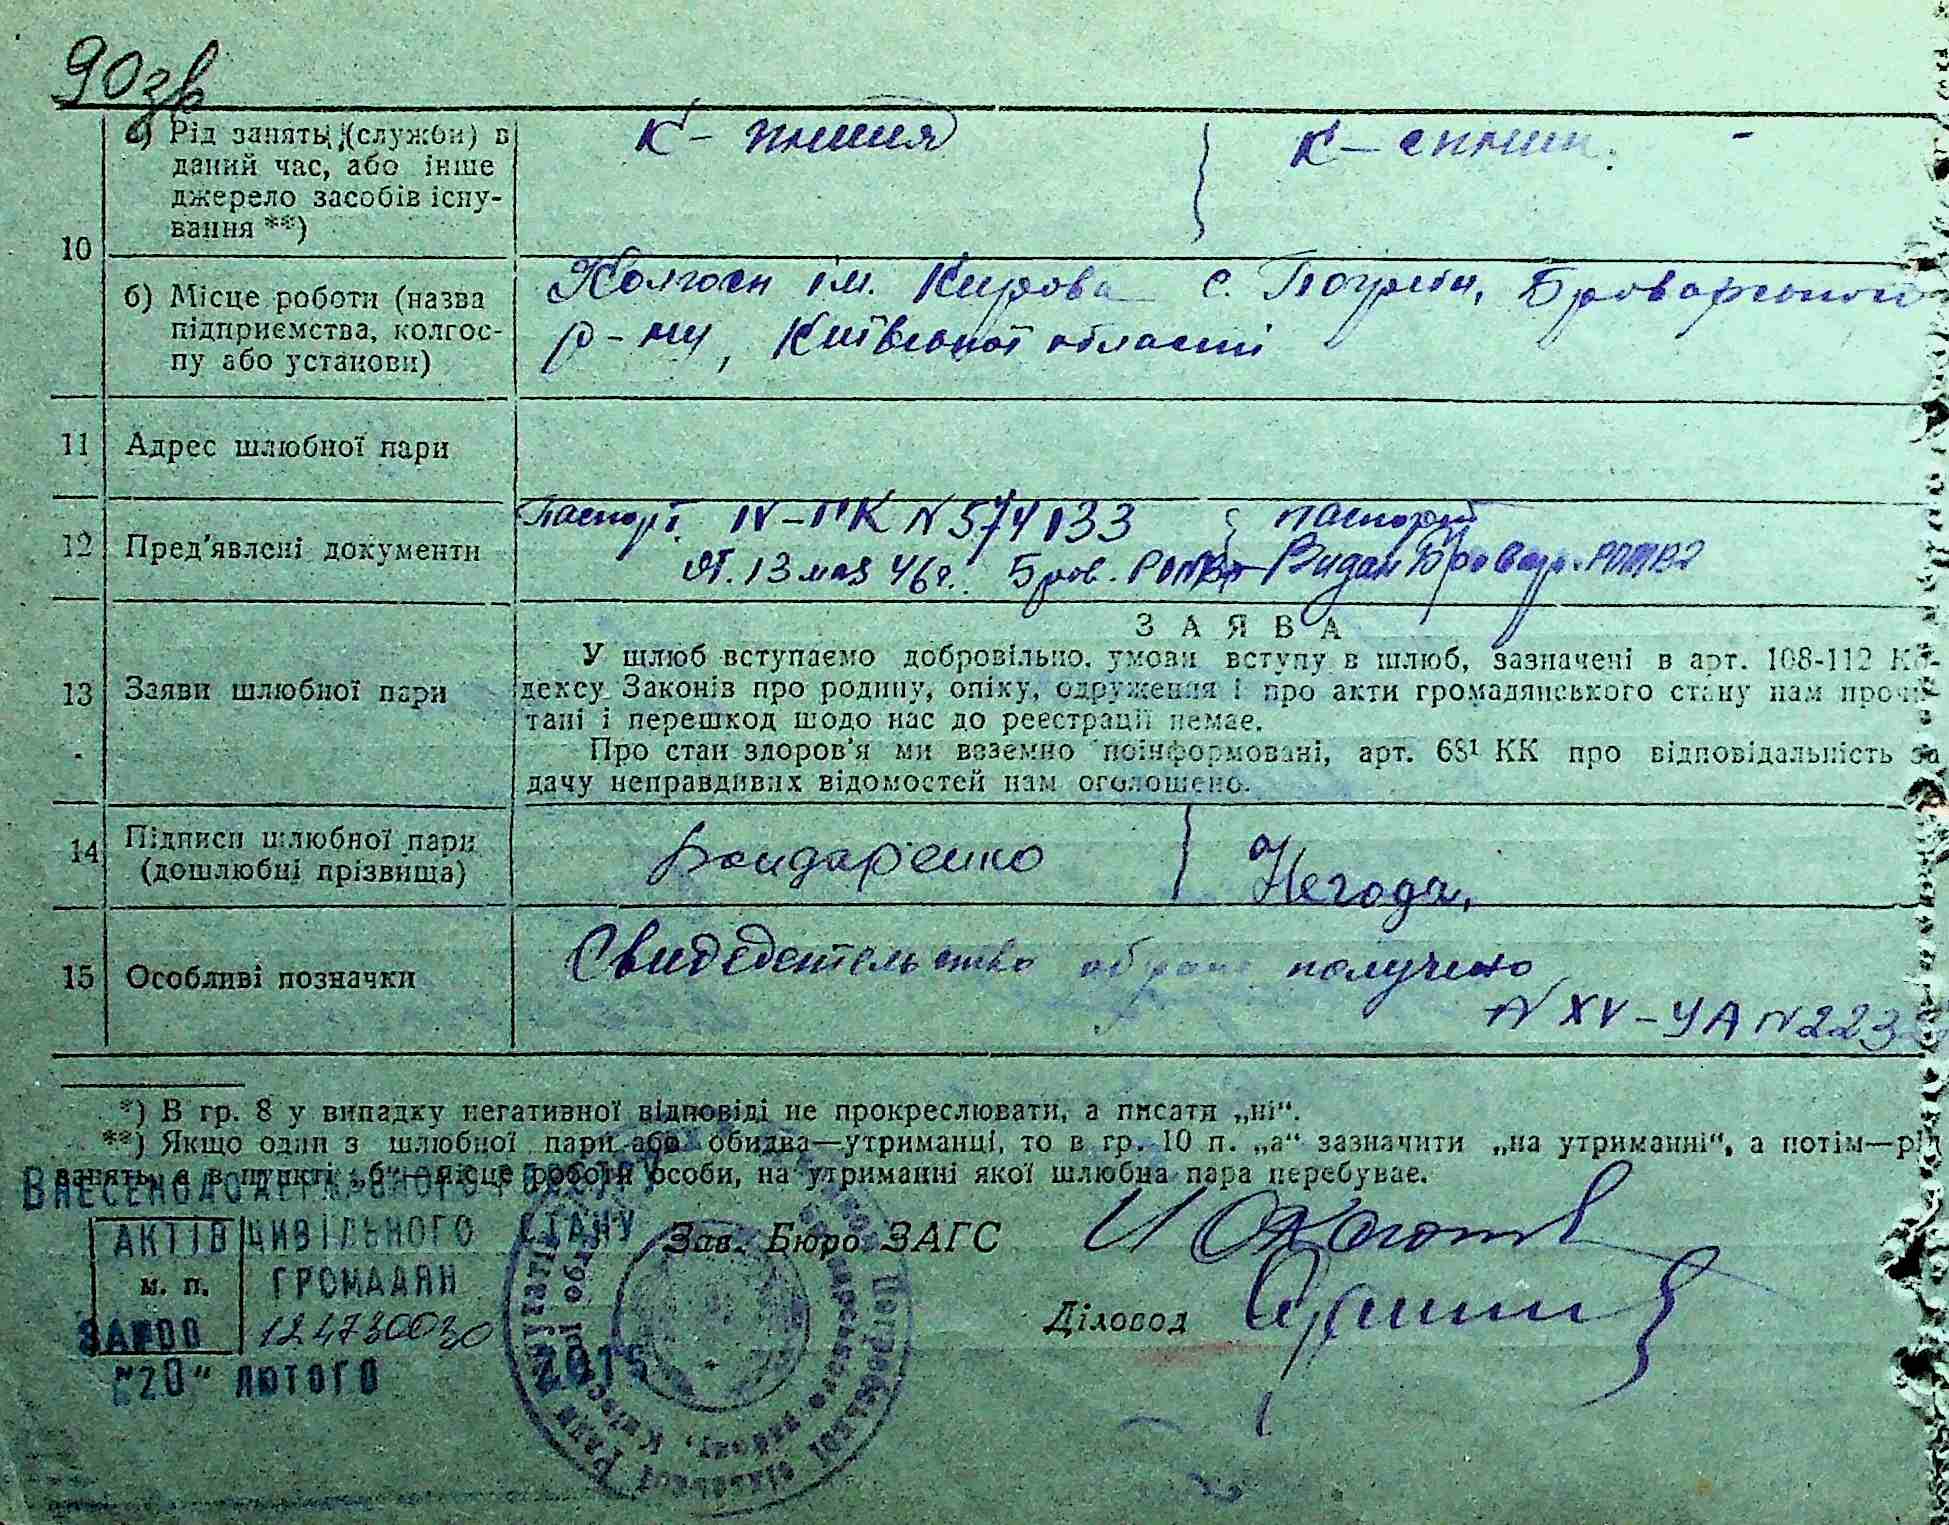 90зв
а) Рід занять (служби) в
даний час, або інше
джерело засобів існу-
вання **)
К-
К-
10
б) Місце роботи (назва
підприємства, колгос-
пу або установи)
Колгосп ім. Кирова с. Погреби, Броварського
р-ну, Київської області
11 Адрес шлюбної пари
12 Пред'явлені документи
Паспорт IV-ПК N 574133 паспорт
от. 13 мая 46 г. Бров. Видан Бровар.
13 Заяви шлюбної пари
ЗАЯВА
У шлюб вступаємо добровільно. умови вступу в шлюб, зазначені в арт. 108-112 Ко-
дексу Законів про родину, опіку, одруження і про акти громадянського стану нам прочи-
тані і перешкод щодо нас до реєстрації немає.
Про стан здоров'я ми взаємно поінформовані, арт. 68¹ КК про відповідальність за
дачу неправдивих відомостей нам оголошено.
14 Підписи шлюбної пари
(дошлюбні прізвища)
Бондаренко
Негода
15 Особливі позначки
получено
N XV-УА N 223
*) В гр. 8 у випадку негативної відповіді не прокреслювати, а писати „ні“.
**) Якщо один з шлюбної пари або обидва—утриманці, то в гр. 10 п. „а“ зазначити „на утриманні“, а потім—рід
занять, а в пункті „б“—місце роботи особи, на утриманні якої шлюбна пара перебуває.
ВНЕСЕНО ДО ДЕРЖАВНОГО РЕЄСТРУ
АКТІВ ЦИВІЛЬНОГО СТАНУ
ГРОМАДЯН
м. п.
ЗА №00 124730030
"20" ЛЮТОГО 2015
Зав. Бюро ЗАГС
Діловод